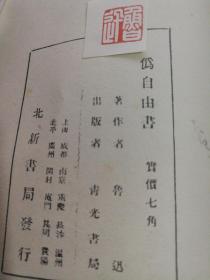 魯迅
僞自由書 實價七角
著作者 魯迅
出版者 青光書局
上海 成都 南京 重慶 長沙 溫州
北平 廣州 開封 廈門 昆明
北新書局發行